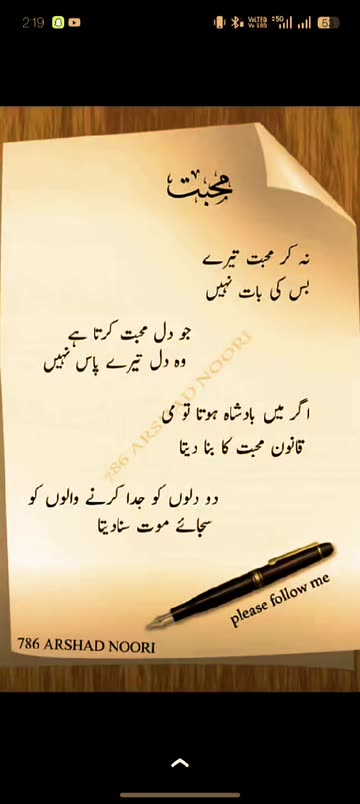 2:19
VoLTE
5G
53
محبت
نہ کر محبت تیرے
بس کی بات نہیں
جو دل محبت کرتا ہے
وہ دل تیرے پاس نہیں
786 ARSHAD NOORI
اگر میں بادشاہ ہوتا تو می
قانون محبت کا بنا دیتا
دو دلوں کو جدا کرنے والوں کو
سجائے موت سنادیتا
please follow me
786 ARSHAD NOORI